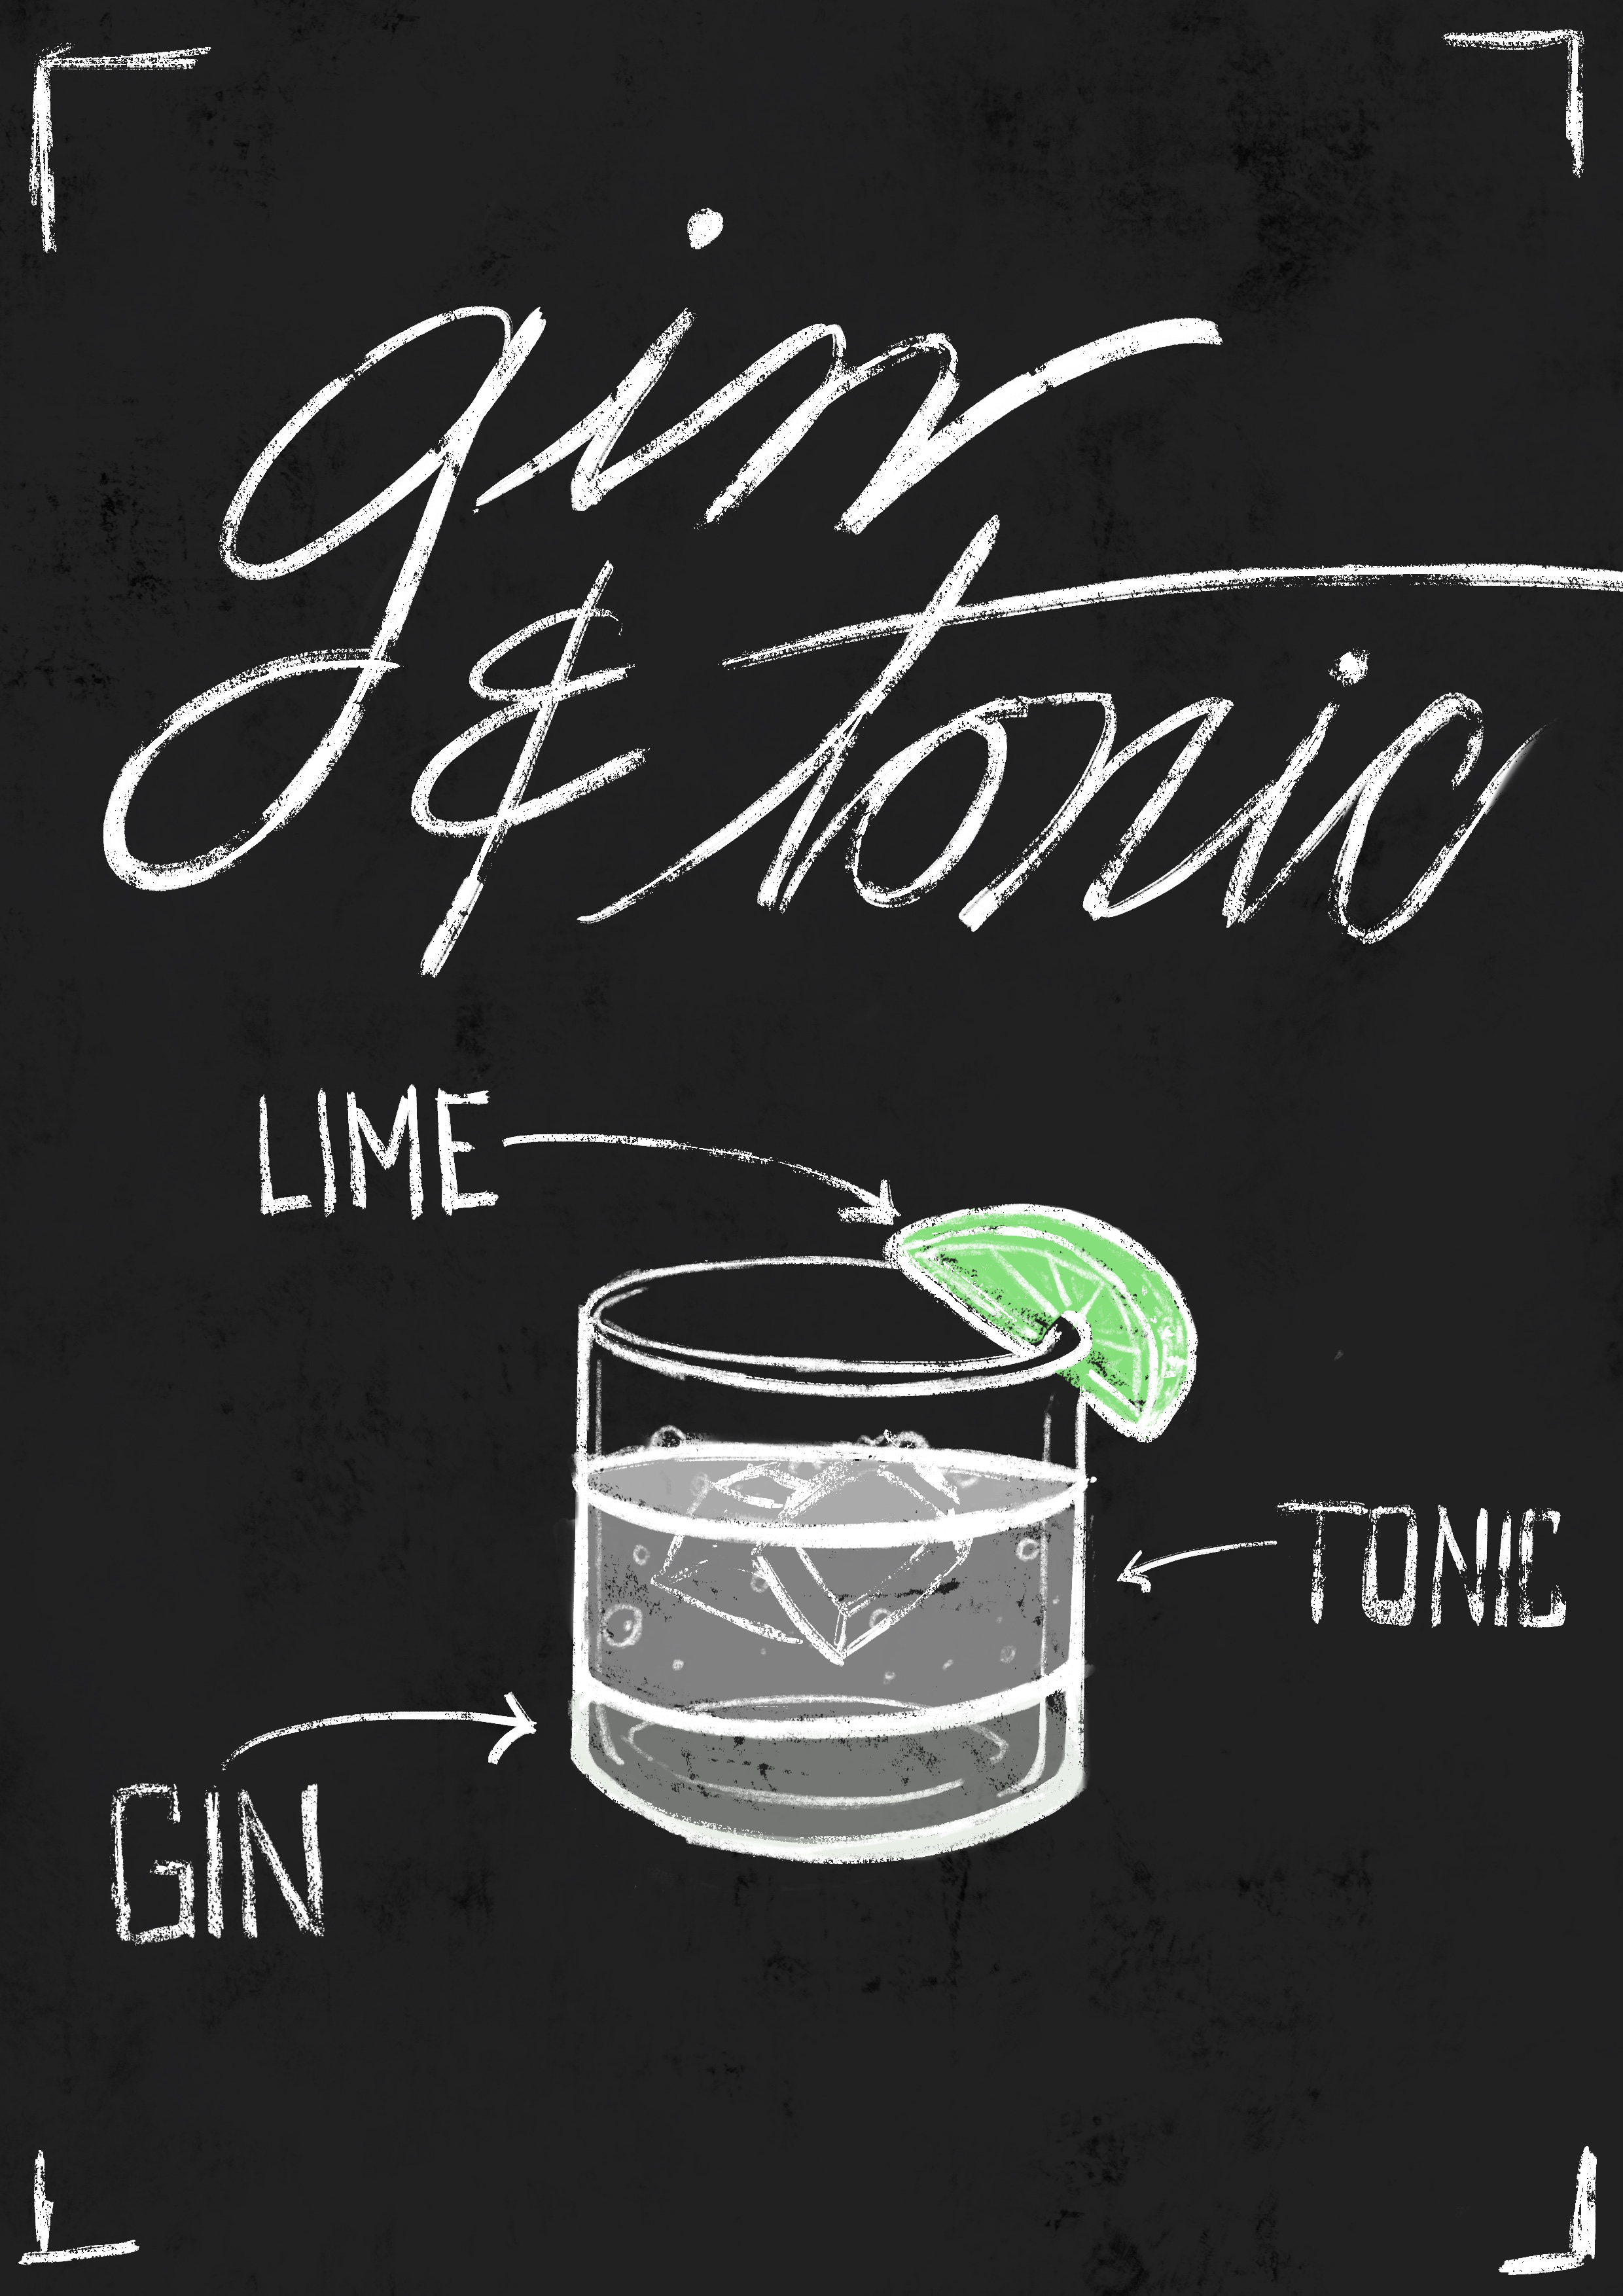 gin
& tonic
LIME
TONIC
GIN